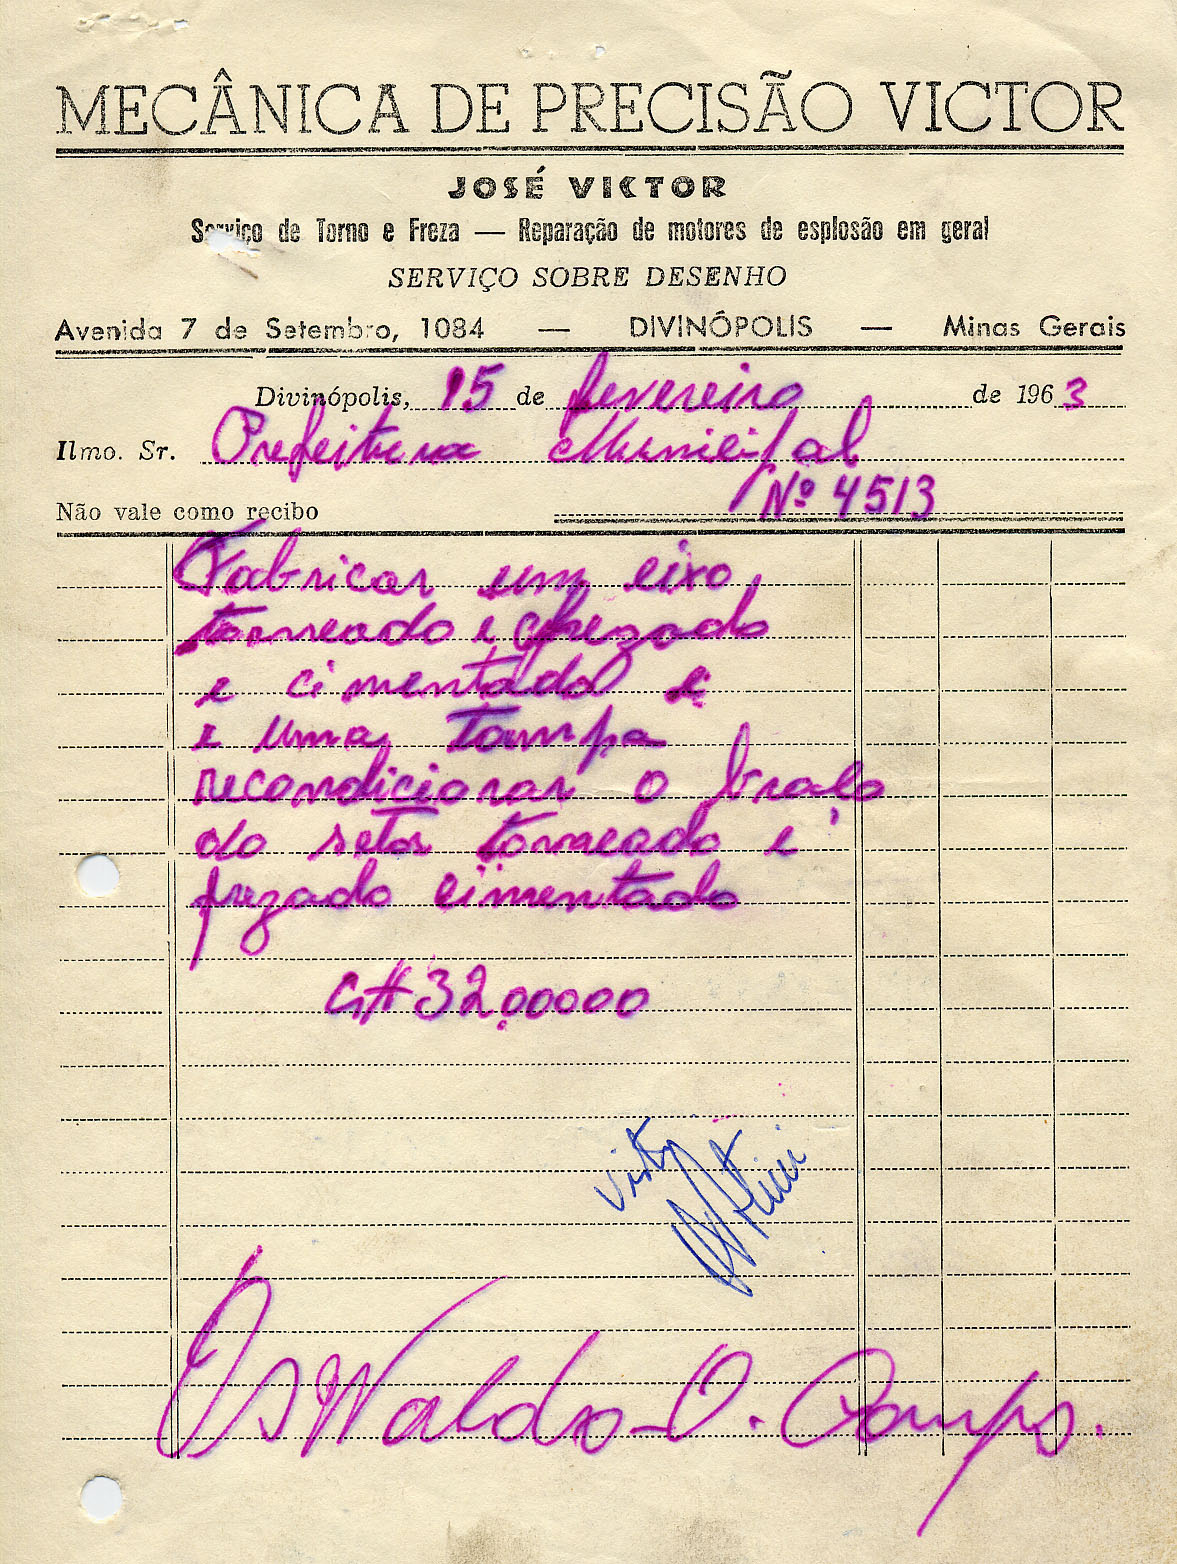 MECÂNICA DE PRECISÃO VICTOR
JOSÉ VICTOR
Serviço de Torno e Freza — Reparação de motores de esplosão em geral
SERVIÇO SOBRE DESENHO
Avenida 7 de Setembro, 1084 — DIVINÓPOLIS — Minas Gerais
Divinópolis, 15 de fevereiro de 1963
Ilmo. Sr. Prefeitura Municipal
Nº 4513
Não vale como recibo
Fabricar um eixo,
torneado e frezado
e cimentado e
e uma tampa
recondicionar o braço
do setor torneado e
frezado cimentado
Cr$ 32.00000
Visto
Oswaldo O. Campos.